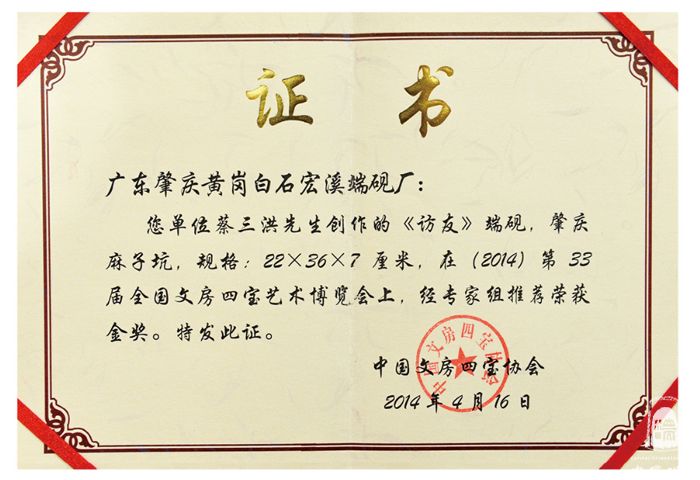 证书
广东肇庆黄岗白石宏溪端砚厂：
您单位蔡三洪先生创作的《访友》端砚，肇庆
麻子坑，规格：22×36×7 厘米，在（2014）第 33
届全国文房四宝艺术博览会上，经专家组推荐荣获
金奖。特发此证。
中国文房四宝协会
中国文房四宝协会
2014 年 4 月 16 日